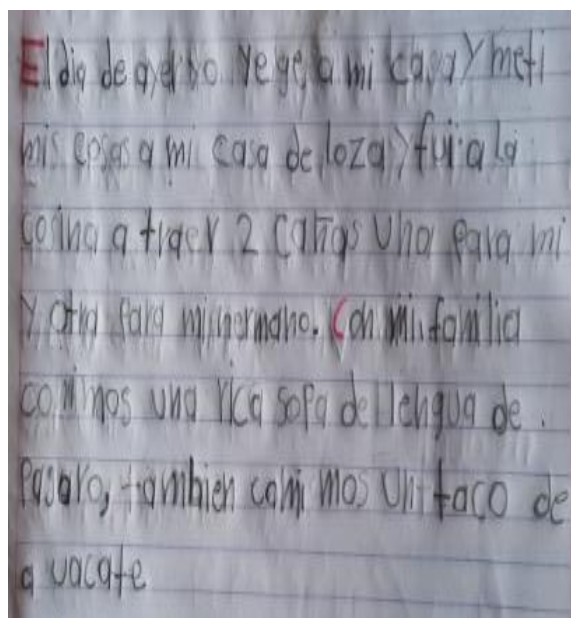 El dia de ayer yo yege a mi casa y meti
mis cosas a mi casa de loza y fui a la
cosina a traer 2 cañas una para mi
y otra para mi hermano. Con mi familia
comimos una rica sopa de lengua de
pajaro, tambien comimos un taco de
a uacate